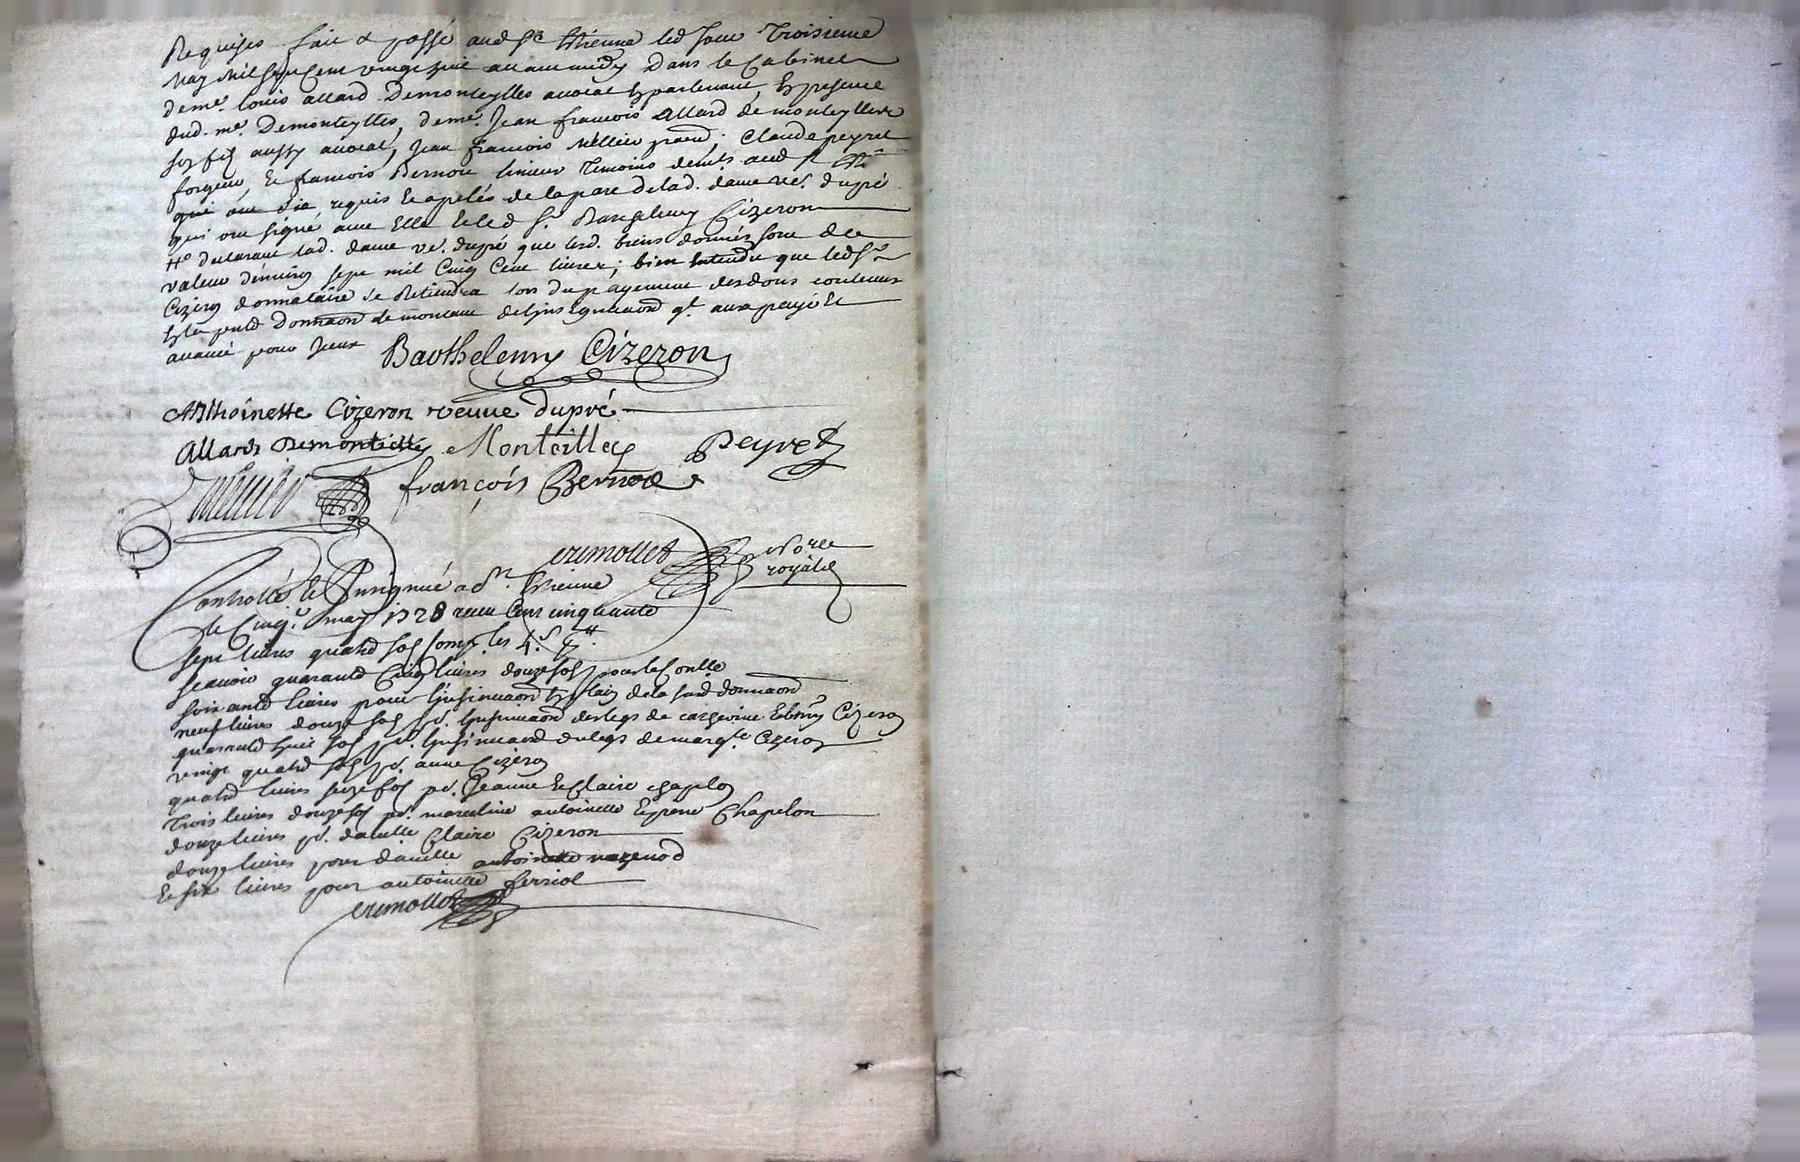 Requises fait & passé aud St Etienne led jour Troisieme
May Mil sept Cent vingt huit avant midy Dans le Cabinet
de me. Louis allard Demonteylles avocat En parlement, En presence
dud. me. Demonteylles, de me. Jean francois Allard de monteylles
son fils aussy avocat, Jean francois Mellier, Claude peyret
forgeur, Et francois Bernou Temoins aud St
qui requis Et apelés de la part de lad. dame ve. dupré
qui ont signé avec Elle Et led Sr. Barthelemy Cizeron
declarant lad. dame ve. dupré que lesd. biens donnés sont de
valeur d'environ sept mil Cinq Cent livres; bien Entendu que led Sr
Cizeron donnataire se Retiendra lors du payement des dons contenus
donnaon le montant de l'insignuaon qt. aura payé Et
avancé pour Iceux
Barthelemy Cizeron
Anthoinette Cizeron veuve dupré
Allard Demonteilles Monteilles Peyret
Mellier françois Bernou
crimollet Nore
royal
Controllé Et Insignué a St. Etienne
le Cinq. may 1728 receu Cent cinquante
sept livres quatre sols comp. les 4. s.
scavoir quarante Cinq livres douze sols pour le Conlle
soixante livres pour l'insinuaon En plain de la sus donnaon
neuf livres douze sols pr. Insinuaon des legs de Cizeron
quarante huit sols pr. Insinuaon du legs de margte. Cizeron
vingt quatre sols pr. anne Cizeron
quatre livres seize sols pr. Jeanne Et Claire chapelon
Trois livres douze sols pr. marceline antoinette Et Chapelon
douze livres pr. Claire Cizeron
douze livres pour antoinette mazenod
Et six livres pour antoinette ferriol
crimollet